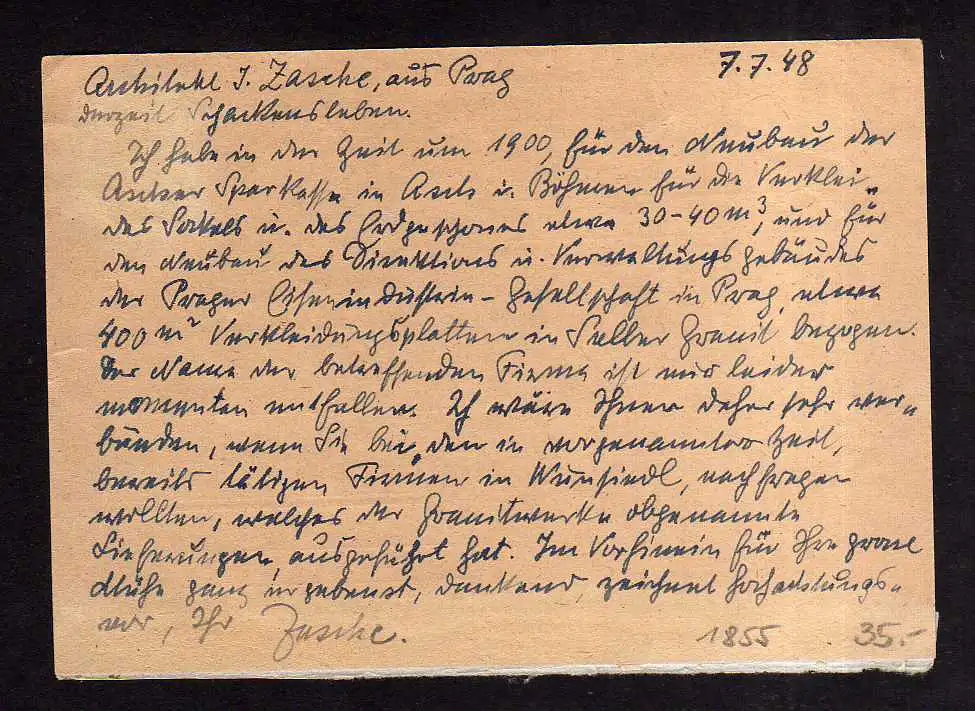 Architekt J. Zasche, aus Prag 7.7.48
derzeit Schackensleben.
Ich habe in der Zeit um 1900, für den Neubau der
Ascher Sparkasse in Asch i. Böhmen für die Verklei„
des Sockels u. des Erdgeschosses etwa 30-40 m³, und für
den Neubau des Direktions u. Verwaltungsgebäudes
der Prager Eisenindustrie-Gesellschaft in Prag, etwa
400 m² Verkleidungsplatten in Selber Granit, bezogen.
Der Name der betreffenden Firma ist mir leider
momentan entfallen. Ich wäre Ihnen daher sehr ver„
bunden, wenn Sie bei den in vorgenannter Zeit,
bereits tätigen Firmen in Wunsiedl, nachfragen
wollten, welches der Granitwerke obgenannte
Lieferungen, ausgeführt hat. Im Vorhinein für Ihre
Mühe ganz ergebenst, dankend, zeichnet hochachtungs„
vor, Ihr Zasche.
1855 35.-